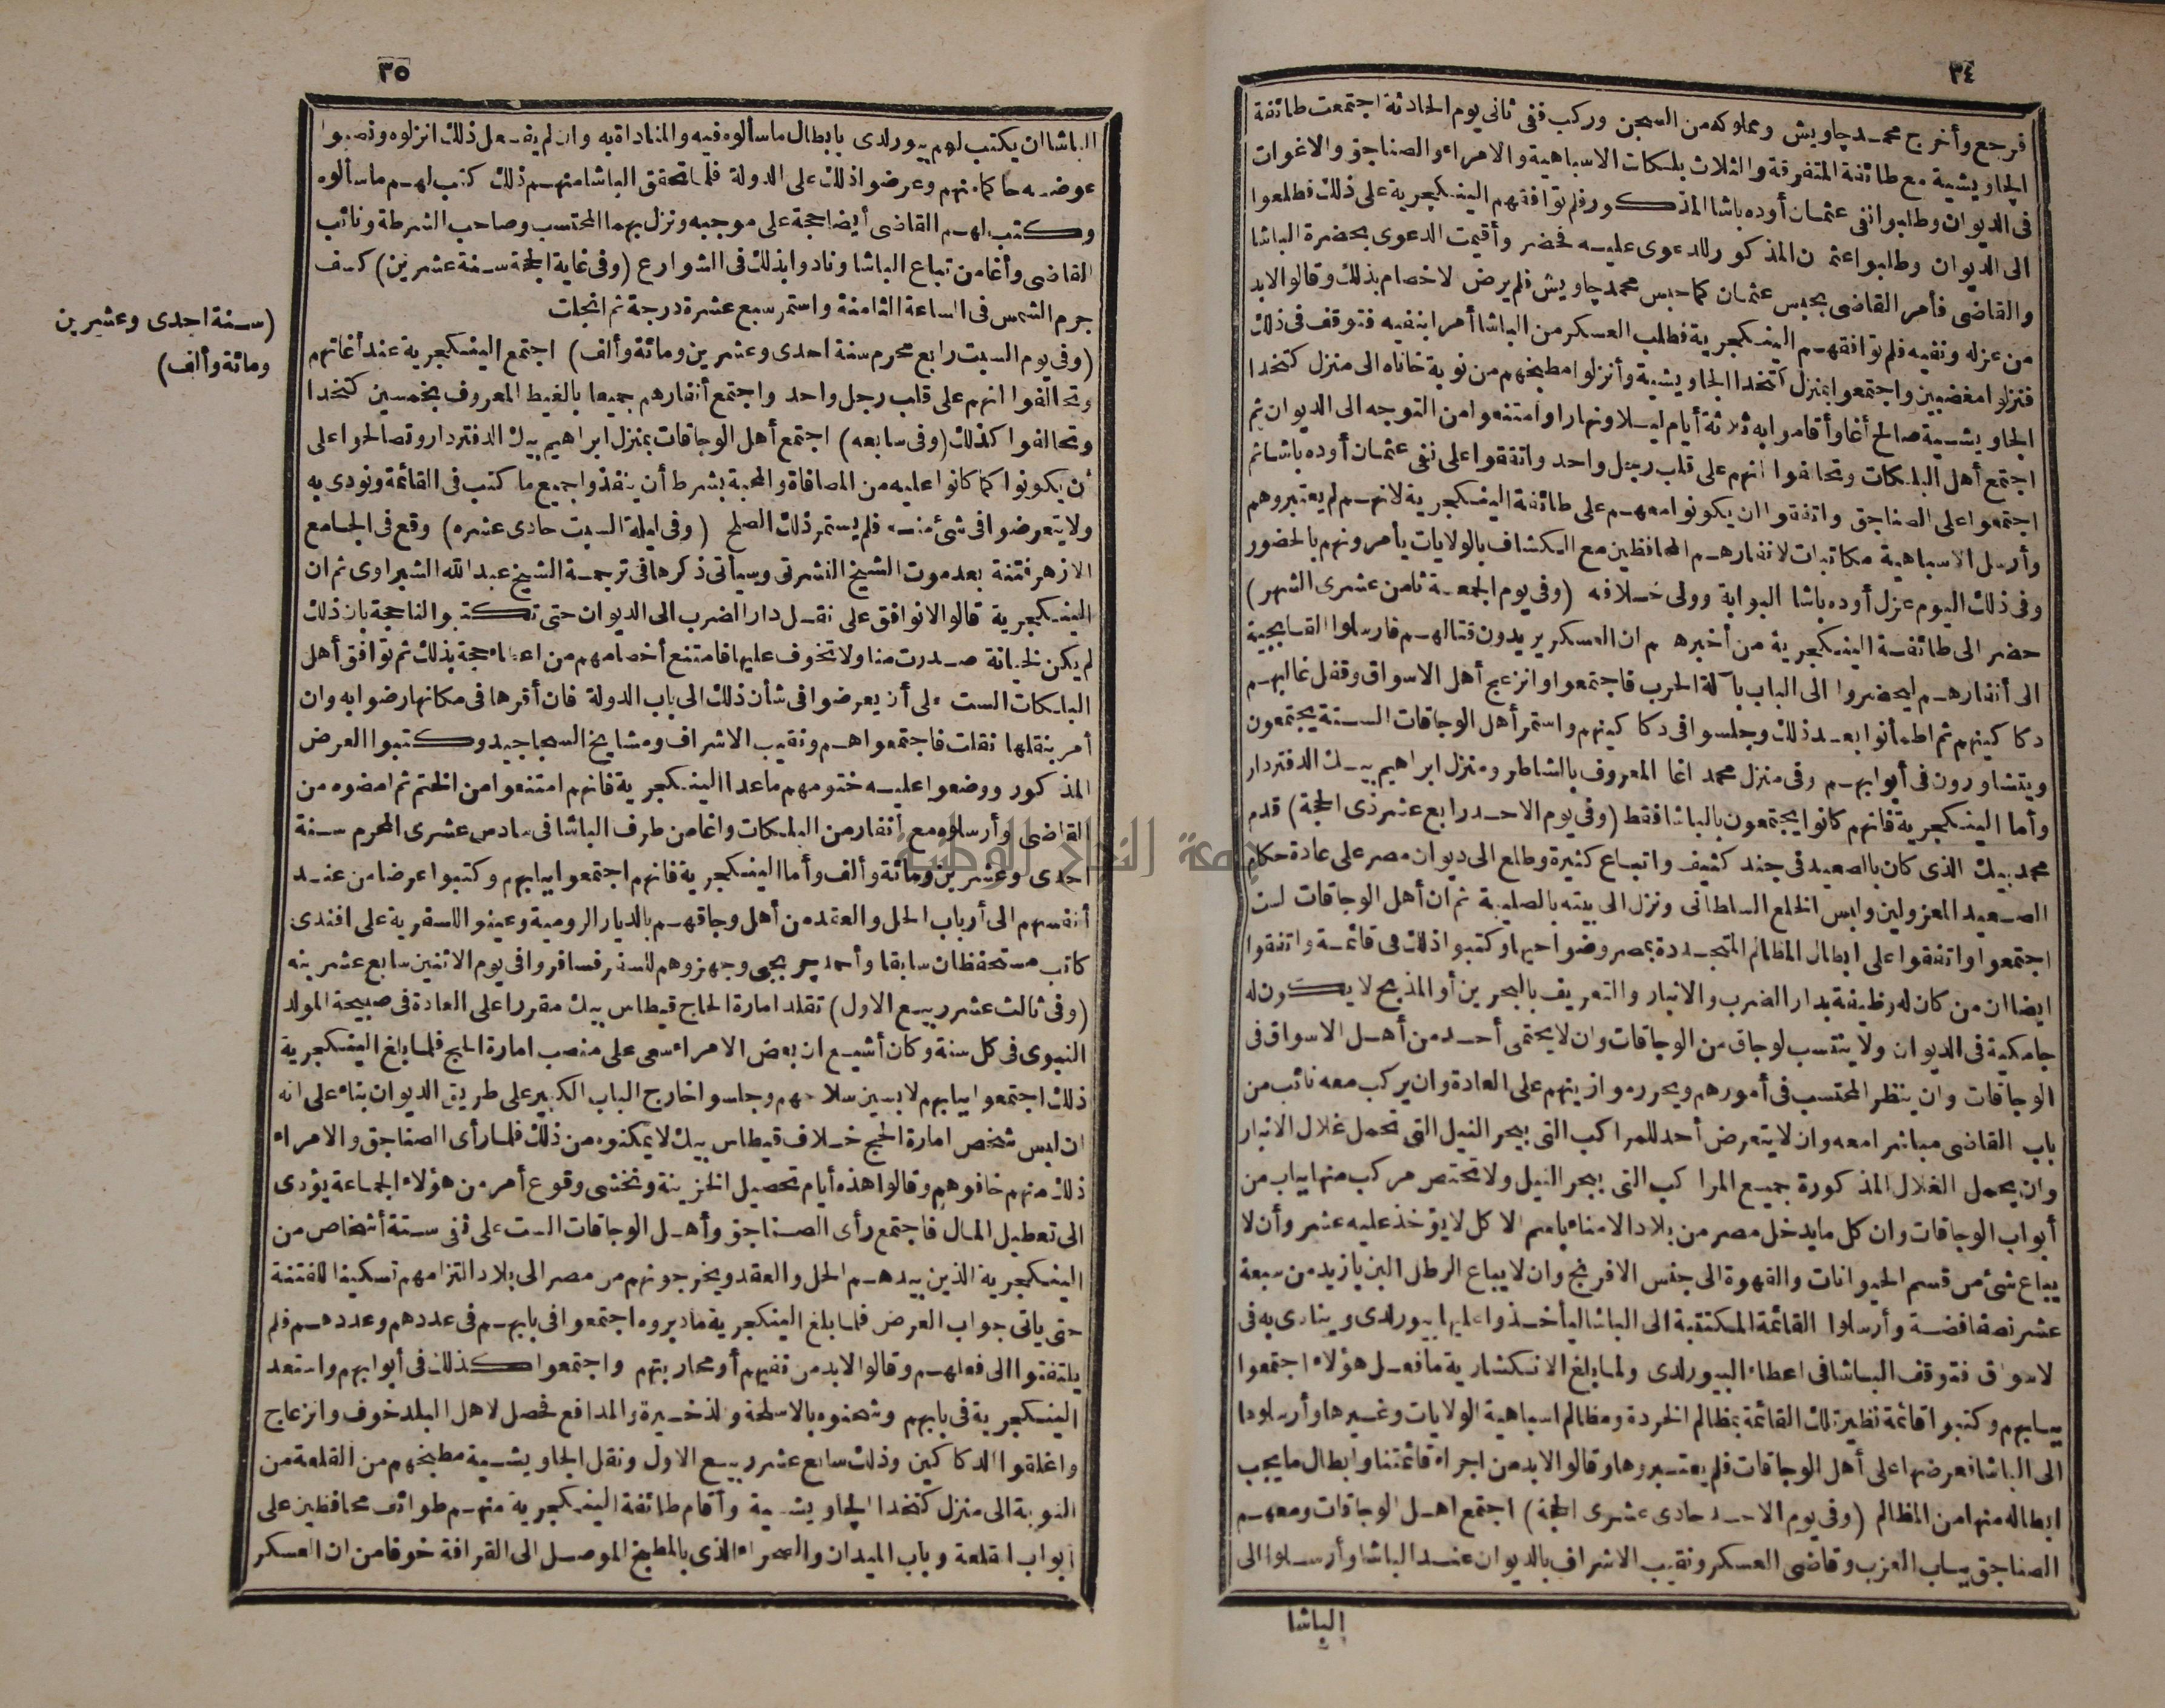 ٣٤
فرجع وأخرج محمد چاويش ومملوكه من السجن وركب ففى ثانى يوم الحادثة اجتمعت طائفة
الچاويشية مع طائفة المتفرقة والثلاث بلكات الاسباهية والامراء والصناجق والاغوات
فى الديوان وطلبوا نفى عثمان أوده باشا المذكور فلم توافقهم الينكجرية على ذلك فطلعوا
الى الديوان وطلبوا عثمان المذكور للدعوى عليه فحضر وأقيمت الدعوى بحضرة الباشا
والقاضى فأمر القاضى بحبس عثمان كما حبس محمد چاويش فلم يرض الاخصام بذلك وقالوا لابد
من عزله ونفيه فلم توافقهم الينكجرية فطلب العسكر من الباشا أمرا بنفيه فتوقف فى ذلك
فنزلوا مغضبين واجتمعوا بمنزل كتخدا الجاويشية وأنزلوا مطبخهم من نوبة خاناه الى منزل كتخدا
الجاويشية صالح أغا وأقاموا به ثلاثة أيام ليلا ونهارا وامتنعوا من التوجه الى الديوان ثم
اجتمع أهل البلكات وتحالفوا انهم على قلب رجل واحد واتفقوا على نفى عثمان أوده باشا ثم
اجتمعوا على الصناجق واتفقوا ان يكونوا معهم على طائفة الينكجرية لانهم لم يعتبروهم
وأرسل الاسباهية مكاتبات لانفارهم المحافظين مع الكشاف بالولايات يأمرونهم بالحضور
وفى ذلك اليوم عزل أوده باشا البوابة وولى خلافه (وفى يوم الجمعة ثامن عشرى الشهر)
حضر الى طائفة الينكجرية من أخبرهم ان العسكر يريدون قتالهم فارسلوا القابجية
الى أنفارهم ليحضروا الى الباب بآلة الحرب فاجتمعوا وانزعج أهل الاسواق وقفل غالبهم
دكاكينهم ثم اطمأنوا بعد ذلك وجلسوا فى دكاكينهم واستمر أهل الوجاقات الستة يجتمعون
ويتشاورون فى أبوابهم وفى منزل محمد اغا المعروف بالشاطر ومنزل ابراهيم بيك الدفتردار
وأما الينكجرية فانهم كانوا يجتمعون بالباشا فقط (وفى يوم الاحد رابع عشر ذى الحجة) قدم
محمد بيك الذى كان بالصعيد فى جند كثيف واتباع كثيرة وطلع الى ديوان مصر على عادة حكام
الصعيد المعزولين ولبس الخلع السلطانى ونزل الى بيته بالصليبة ثم ان أهل الوجاقات الست
اجتمعوا واتفقوا على ابطال المظالم المتجددة بمصر وضواحيها وكتبوا ذلك فى قائمة واتفقوا
ايضا ان من كان له وظيفة بدار الضرب والانبار والتعريف بالبحرين أو المذبح لا يكون له
جامكية فى الديوان ولا ينتسب لوجاق من الوجاقات وان لا يحتمى أحد من أهل الاسواق فى
الوجاقات وان ينظر المحتسب فى أمورهم ويحرر موازينهم على العادة وان يركب معه نائب من
باب القاضى مباشرا معه وان لا يتعرض أحد للمراكب التى ببحر النيل التى تحمل غلال الانبار
وان يحمل الغلال المذكورة جميع المراكب التى ببحر النيل ولا تختص مركب منها بباب من
أبواب الوجاقات وان كل ما يدخل مصر من بلاد الامناء باسم الاكل لا يؤخذ عليه عشر وأن لا
يباع شئ من قسم الحيوانات والقهوة الى جنس الافرنج وان لا يباع الرطل البن بازيد من سبعة
عشر نصفا فضة وأرسلوا القائمة المكتتبة الى الباشا ليأخذوا عليها بيورلدى وينادى به فى
الاسواق فتوقف الباشا فى اعطاء البيورلدى ولما بلغ الانكشارية ما فعل هؤلاء اجتمعوا
ببابهم وكتبوا قائمة نظير تلك القائمة بمظالم الخردة ومظالم اسباهية الولايات وغيرها وأرسلوها
الى الباشا فعرضها على أهل الوجاقات فلم يعتبروها وقالوا لابد من اجراء قائمتنا وابطال ما يجب
ابطاله منها من المظالم (وفى يوم الاحد حادى عشرى الحجة) اجتمع اهل الوجاقات ومعهم
الصناجق بباب العزب وقاضى العسكر ونقيب الاشراف بالديوان عند الباشا وأرسلوا الى
الباشا
٣٥
الباشا ان يكتب لهم بيورلدى بابطال ما سألوه فيه والمناداة به وان لم يفعل ذلك انزلوه ونصبوا
عوضه حاكما منهم وعرضوا ذلك على الدولة فلما تحقق الباشا منهم ذلك كتب لهم ما سألوه
وكتب لهم القاضى أيضا حجة على موجبه ونزل بهما المحتسب وصاحب الشرطة ونائب
القاضى وأغا من اتباع الباشا ونادوا بذلك فى الشوارع (وفى غاية الحجة سنة عشرين) كسف
جرم الشمس فى الساعة الثامنة واستمر سبع عشرة درجة ثم انجلت
(وفى يوم السبت رابع محرم سنة احدى وعشرين ومائة وألف) اجتمع الينكجرية عند أغاتهم
وتحالفوا انهم على قلب رجل واحد واجتمع أنفارهم جميعا بالغيط المعروف بخمسين كتخدا
وتحالفوا كذلك (وفى سابعه) اجتمع أهل الوجاقات بمنزل ابراهيم بيك الدفتردار وتصالحوا على
أن يكونوا كما كانوا عليه من المصافاة والمحبة بشرط أن ينفذوا جميع ما كتب فى القائمة ونودى به
ولا يتعرضوا فى شئ منه فلم يستمر ذلك الصلح (وفى ليلة السبت حادى عشره) وقع فى الجامع
الازهر فتنة بعد موت الشيخ النشرتى وسيأتى ذكرها فى ترجمة الشيخ عبد الله الشبراوى ثم ان
الينكجرية قالوا لا نوافق على نقل دار الضرب الى الديوان حتى تكتبوا لنا حجة بان ذلك
لم يكن لخيانة صدرت منا ولا تخوف عليها فامتنع أخصامهم من اعطاء حجة بذلك ثم توافق أهل
البلكات الست على أن يعرضوا فى شأن ذلك الى باب الدولة فان أقرها فى مكانها رضوا به وان
أمر بنقلها نقلت فاجتمعوا هم ونقيب الاشراف ومشايخ السجاجيد وكتبوا العرض
المذكور ووضعوا عليه ختومهم ما عدا الينكجرية فانهم امتنعوا من الختم ثم امضوه من
القاضى وأرسلوه مع أنفار من البلكات واغا من طرف الباشا فى سادس عشرى المحرم سنة
احدى وعشرين ومائة وألف وأما الينكجرية فانهم اجتمعوا ببابهم وكتبوا عرضا من عند
أنفسهم الى أرباب الحل والعقد من أهل وجاقهم بالديار الرومية وعينوا للسفر به على افندى
كاتب مستحفظان سابقا وأحمد جربجى وجهزوهم للسفر فسافروا فى يوم الاثنين سابع عشرينه
(وفى ثالث عشر ربيع الاول) تقلد امارة الحاج قيطاس بيك مقررا على العادة فى صبيحة المولد
النبوى فى كل سنة وكان أشيع ان بعض الامراء سعى على منصب امارة الحج فلما بلغ الينكجرية
ذلك اجتمعوا ببابهم لابسين سلاحهم وجلسوا خارج الباب الكبير على طريق الديوان بناء على انه
ان لبس شخص امارة الحج خلاف قيطاس بيك لا يمكنوه من ذلك فلما رأى الصناجق والامراء
ذلك منهم خافوهم وقالوا هذه أيام تحصيل الخزينة ونخشى وقوع أمر من هؤلاء الجماعة يؤدى
الى تعطيل المال فاجتمع رأى الصناجق وأهل الوجاقات الست على نفى ستة أشخاص من
الينكجرية الذين بيدهم الحل والعقد ويخرجونهم من مصر الى بلاد التزامهم تسكينا للفتنة
حتى ياتى جواب العرض فلما بلغ الينكجرية ما دبروه اجتمعوا فى بابهم فى عددهم وعددهم فلم
يلتفتوا الى فعلهم وقالوا لابد من نفيهم أو محاربتهم واجتمعوا كذلك فى أبوابهم واستعد
الينكجرية فى بابهم وشحنوه بالاسلحة والذخيرة والمدافع فحصل لاهل البلد خوف وانزعاج
واغلقوا الدكاكين وذلك سابع عشر ربيع الاول ونقل الجاويشية مطبخهم من القلعة من
النوبة الى منزل كتخدا الچاويشية وأقام طائفة الينكجرية منهم طوائف محافظين على
أبواب القلعة وباب الميدان والصحراء الذى بالمطبخ الموصل الى القرافة خوفا من ان العسكر
(سنة احدى وعشرين
ومائة وألف)
جامعة النجاح الوطنية